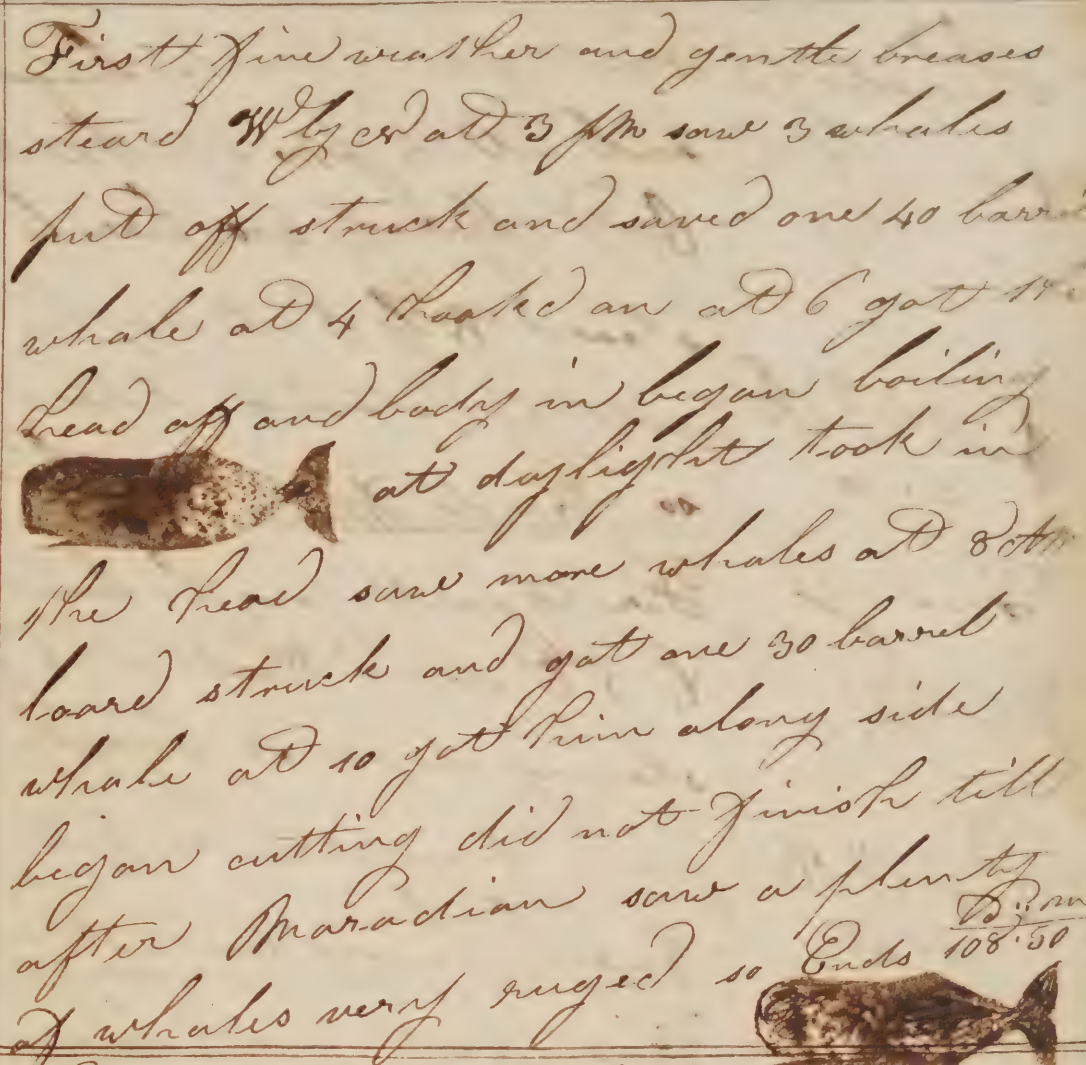 First fine weather and gentle breases
steard W by at 3 PM saw 3 whales
put off struck and saved one 40
whale at 4 hookd on at 6 got
head off and body in began boiling
at daylight took in
the head saw more whales at 8
loard struck and got one 30 barrel
whale at 10 got him along side
began cutting did not finish till
after Maradian saw a plenty
of whales very ruged so Ends 108.50